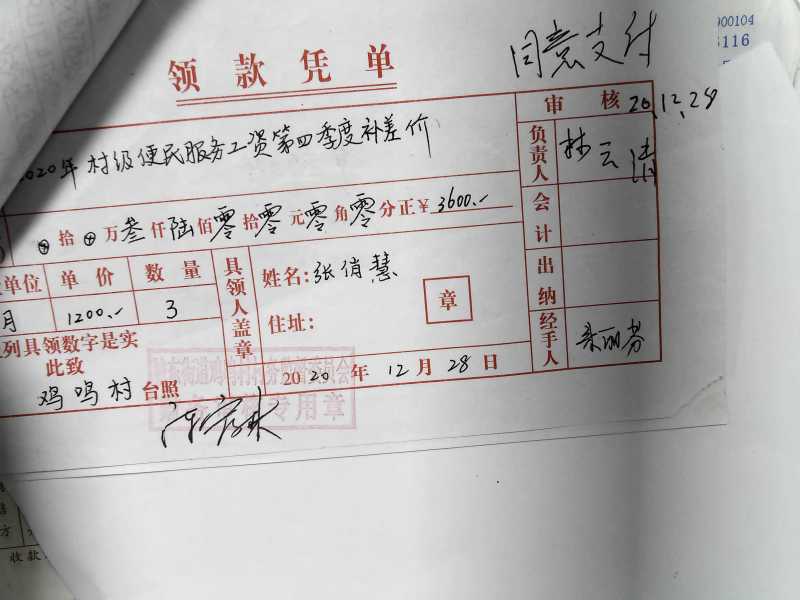 00104
116
领款凭单
同意支付
审核 20.12.28
2020年村级便民服务工资第四季度补差价
负责人 林云
拾 万叁仟陆佰零拾零元零角零分正¥3600.-
会计
单位 单价 数量
月 1200.- 3
具领人盖章
姓名:张俏慧
住址:
章
出纳
经手人
列具领数字是实
此致
鸡鸣村台照
2020年12月28日
专用章
方
收款